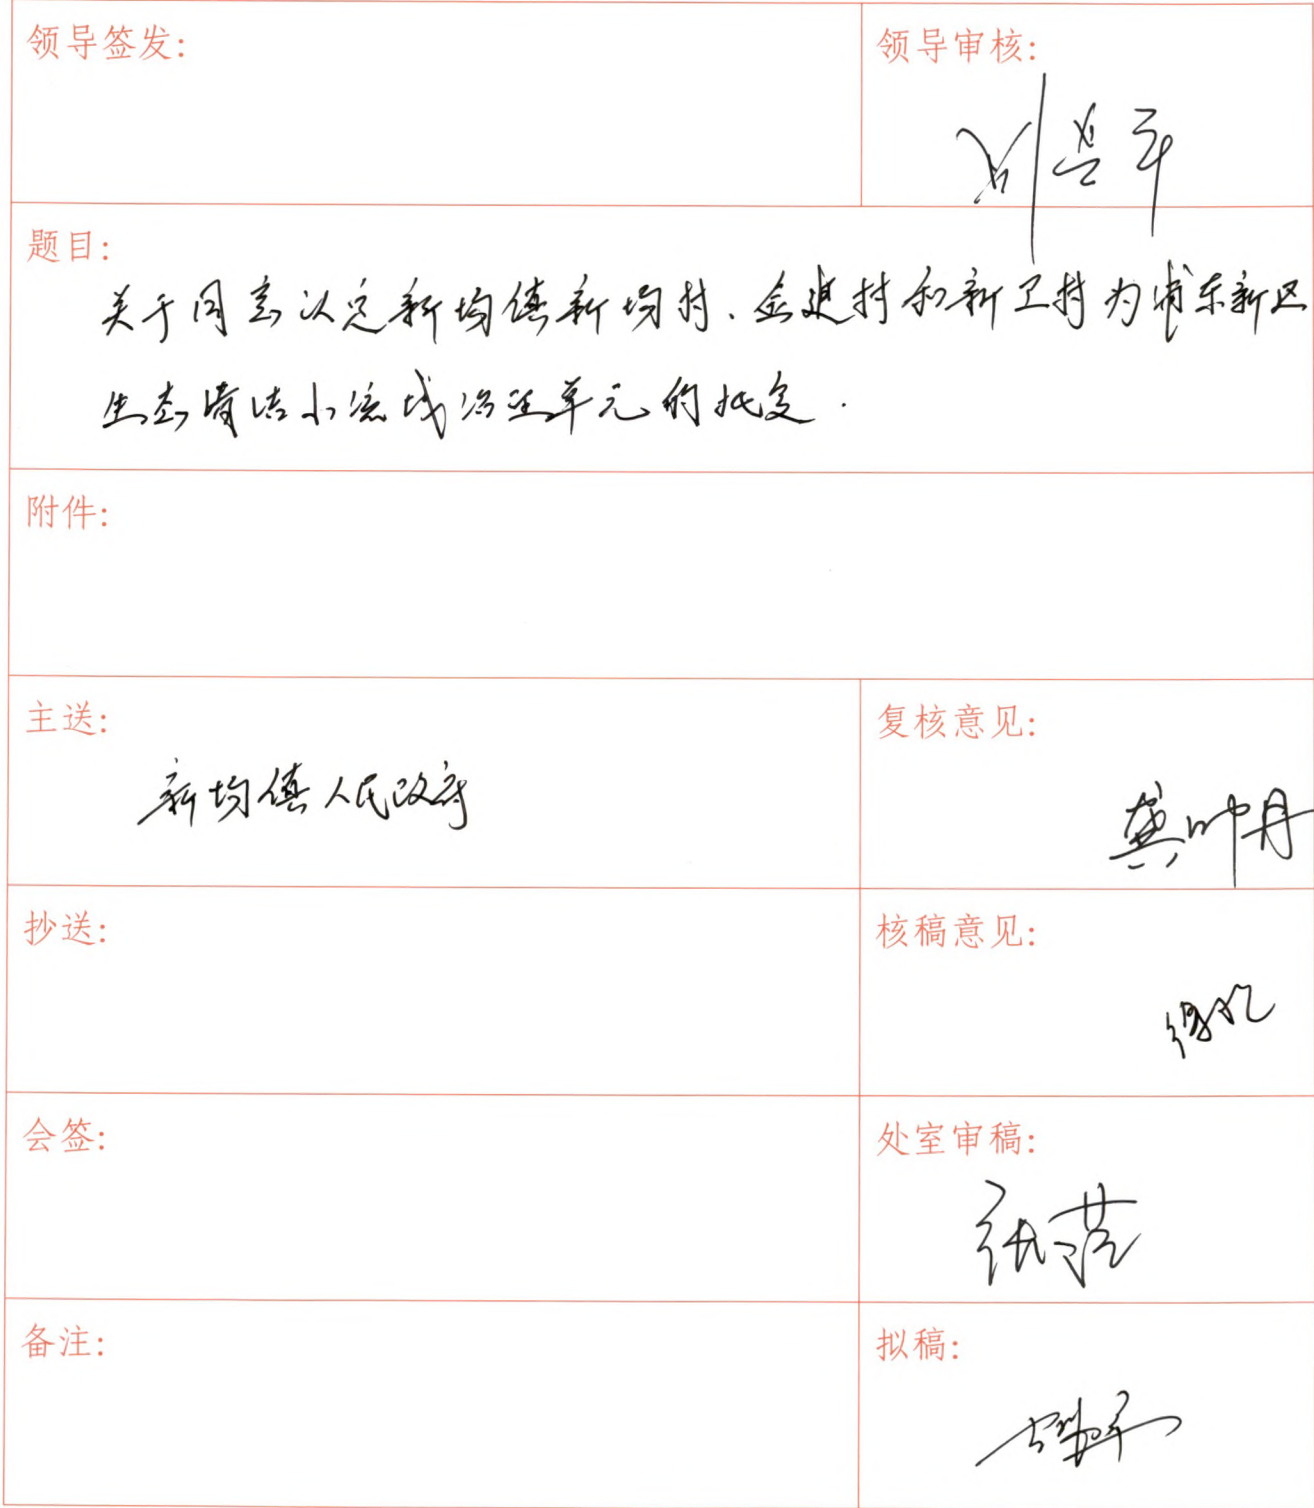 领导签发:
领导审核:
题目:
关于同意认定新场镇新场村、金建村和新卫村为浦东新区
生态清洁小流域治理单元的批复.
附件:
主送:
新场镇人民政府
复核意见:
龚帅丹
抄送:
核稿意见:
会签:
处室审稿:
备注:
拟稿: